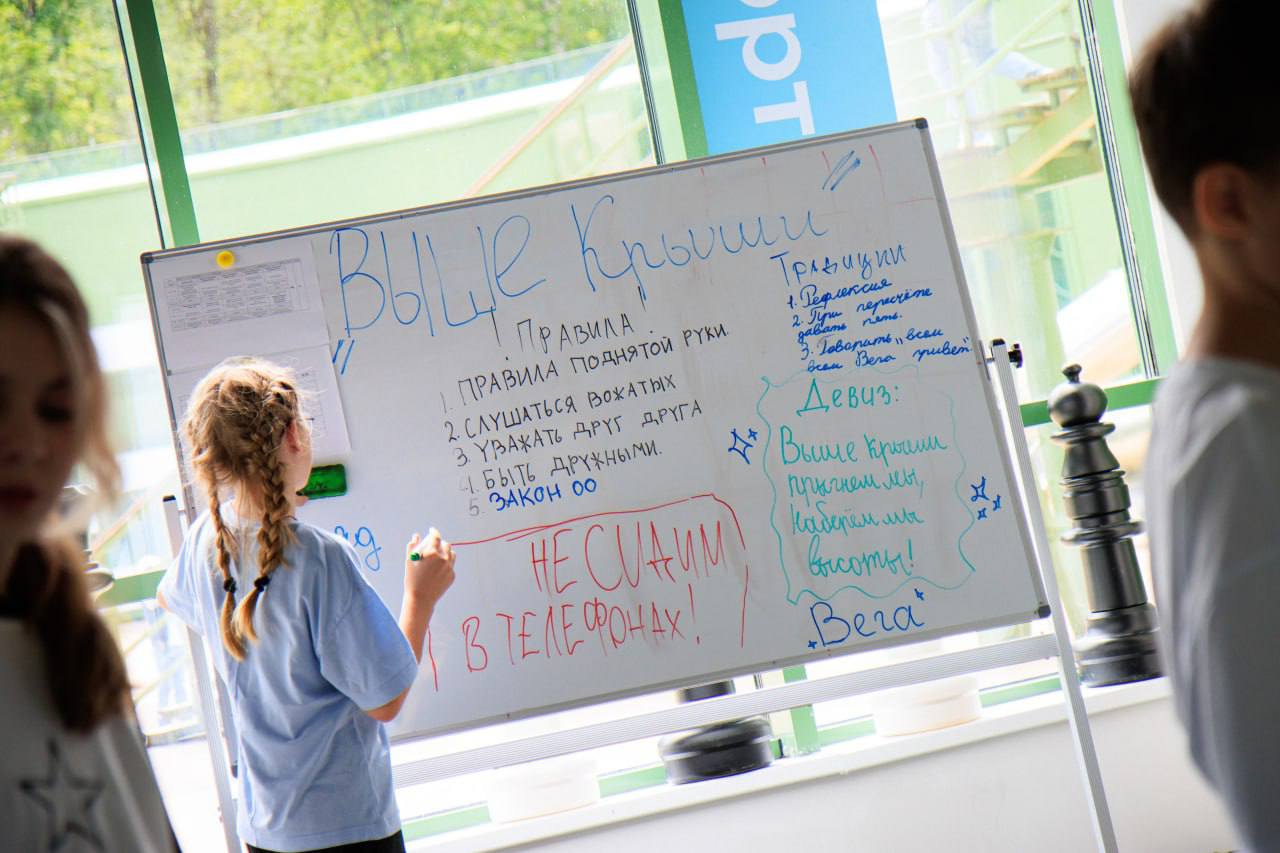 орт
"Выше Крыши"
ПРАВИЛА.
1. ПРАВИЛА ПОДНЯТОЙ РУКИ.
2. СЛУШАТЬСЯ ВОЖАТЫХ
3 УВАЖАТЬ ДРУГ ДРУГА
4. БЫТЬ ДРУЖНЫМИ.
5. ЗАКОН ОО
НЕ СИДИМ
В ТЕЛЕФОНАХ!
Традиции
1. Рефлексия
2. При пересчёте
давать пять.
3. Говорить "всем
всем Вега привет"
Девиз:
Выше крыши
прыгнем мы,
Наберём мы
высоты!
Вега